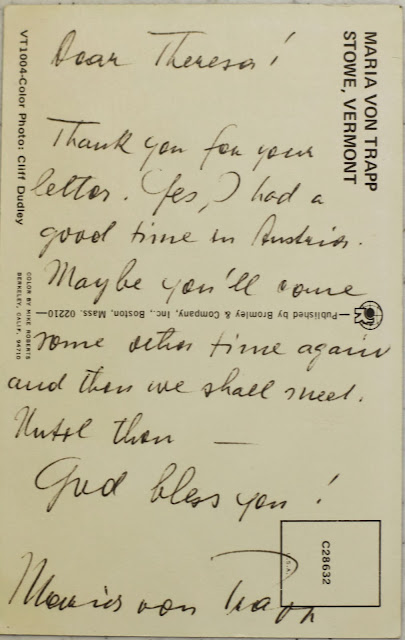 Dear Theresa!
Thank you for your
letter. Yes, I had a
good time in Austria.
Maybe you'll come
some other time again
and then we shall meet.
Until then —
God bless you!
Maria von Trapp
MARIA VON TRAPP
STOWE, VERMONT
VT1004-Color Photo: Cliff Dudley
COLOR BY MIKE ROBERTS
BERKELEY, CALIF. 94710
—Published by Bromley & Company, Inc., Boston, Mass. 02210—
C28632
U.S.A.